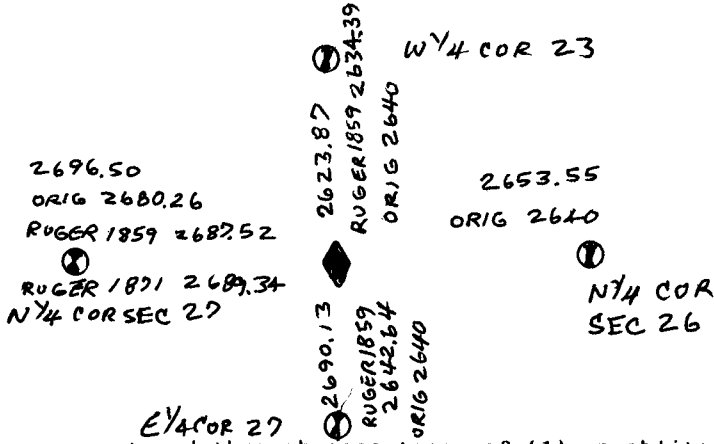 W 1/4 COR 23
2623.87
RUGER 1859 2634.39
ORIG 2640
2696.50
ORIG 2680.26
RUGER 1859 2687.52
RUGER 1871 2689.34
N 1/4 COR SEC 27
2653.55
ORIG 2640
N 1/4 COR
SEC 26
2690.13
RUGER 1859
2642.64
ORIG 2640
E 1/4 COR 27